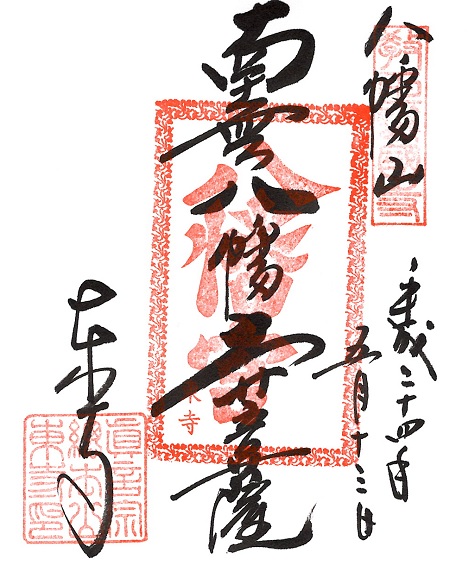 八幡山
平成二十四年
五月十三日
南無八幡大菩薩
八幡宮
東寺
東寺
眞言宗
總本山
東寺印